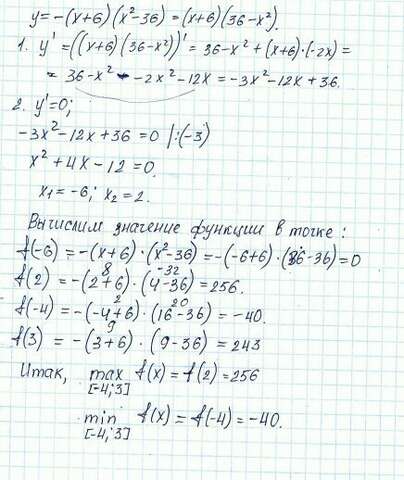 y=-(x+6)(x²-36)=(x+6)(36-x²).
1. y'=((x+6)(36-x²))'=36-x²+(x+6)·(-2x)=
= 36-x²-2x²-12x=-3x²-12x+36.
2. y'=0;
-3x²-12x+36=0 |:(-3)
x²+4x-12=0.
x₁=-6; x₂=2.
Вычислим значение функции в точке:
f(-6) =-(x+6)·(x²-36)=-(-6+6)·(36-36)=0
8 -32
f(2) =-(2+6)·(4-36)=256.
2 20
f(-4) =-(-4+6)·(16-36)=-40.
9
f(3) =-(3+6)·(9-36)=243
Итак, max f(x)=f(2)=256
[-4;3]
min f(x)=f(-4)=-40.
[-4;3]